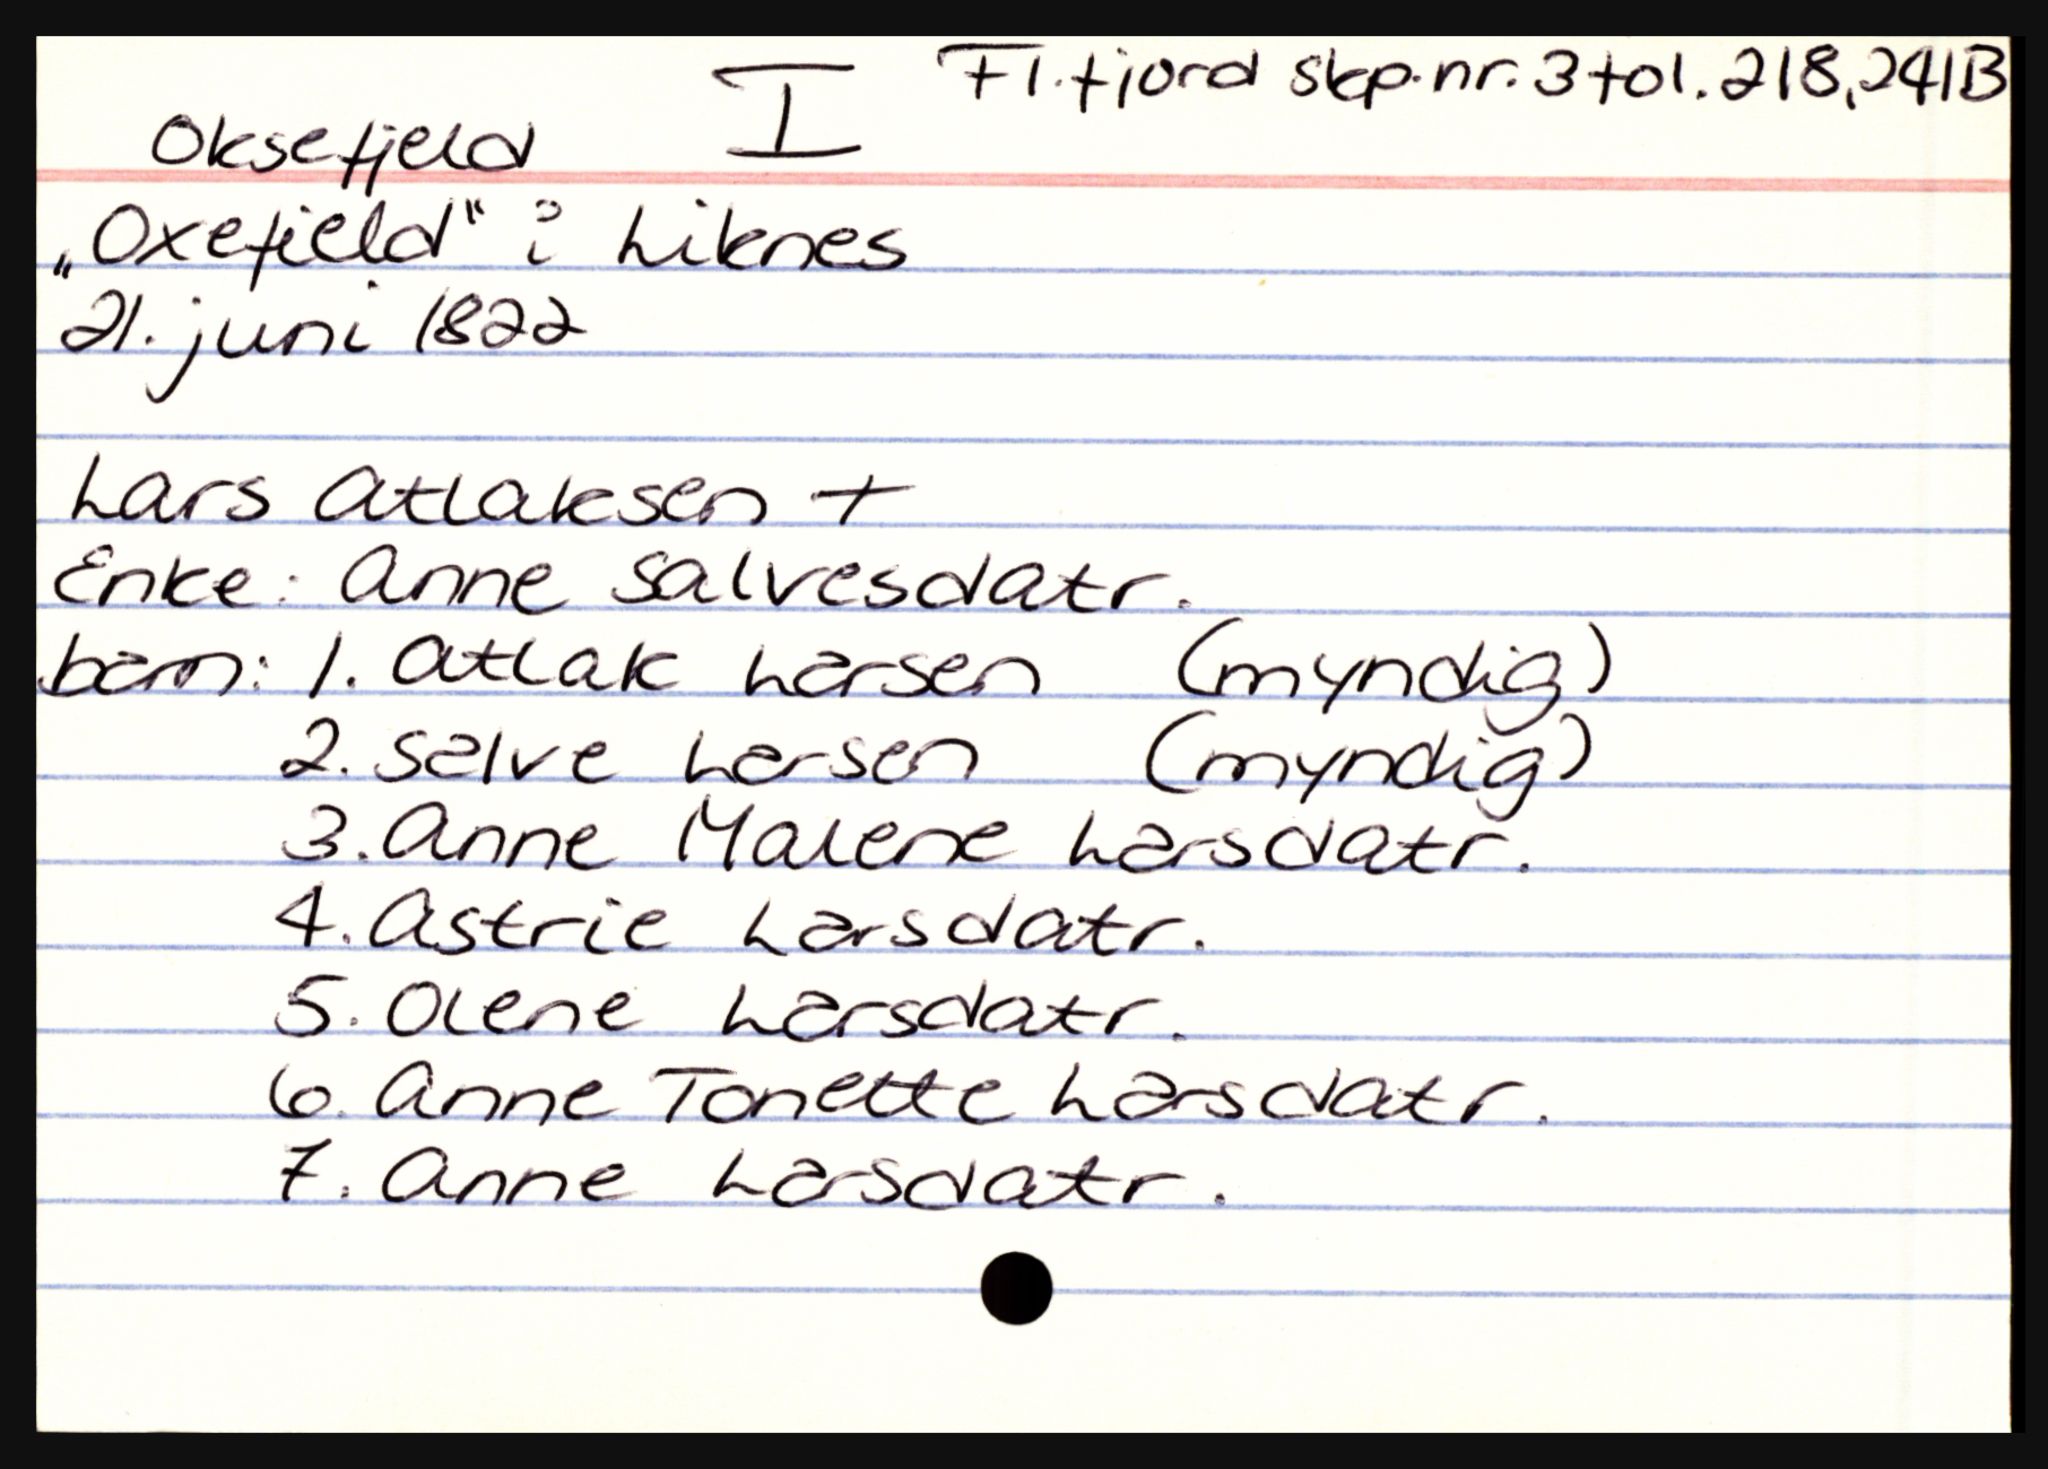 I Fl.fjord skp.nr.3 fol.218,241B
Oksefjeld
„Oxefield“ i Liknes
21. juni 1822
Lars Atlaksen +
Enke: Anne Salvesdatr.
barn: 1. Atlak Larsen (myndig)
2. Salve Larsen (myndig)
3. Anne Malene Larsdatr.
4. Astrie Larsdatr.
5. Olene Larsdatr.
6. Anne Tonette Larsdatr.
7. Anne Larsdatr.